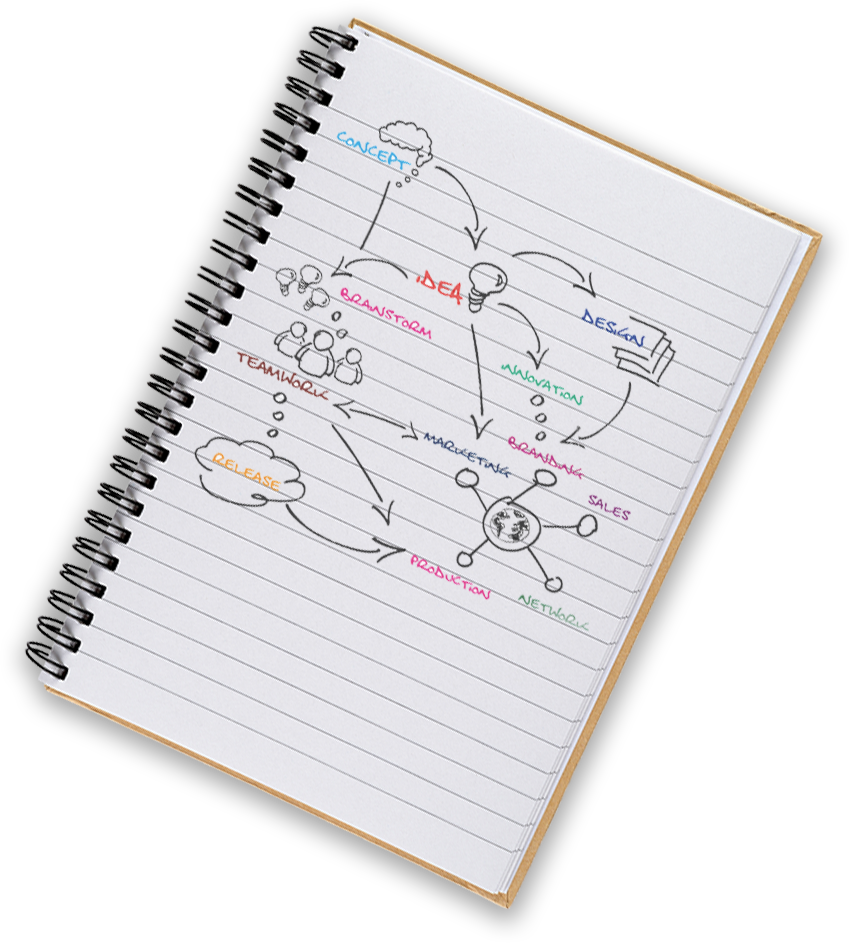 CONCEPT
iDEA
BRAINSTORM
DESIGN
TEAMWORK
iNNOVATION
MARKETING
BRANDING
RELEASE
SALES
PRODUCTION
NETWORK